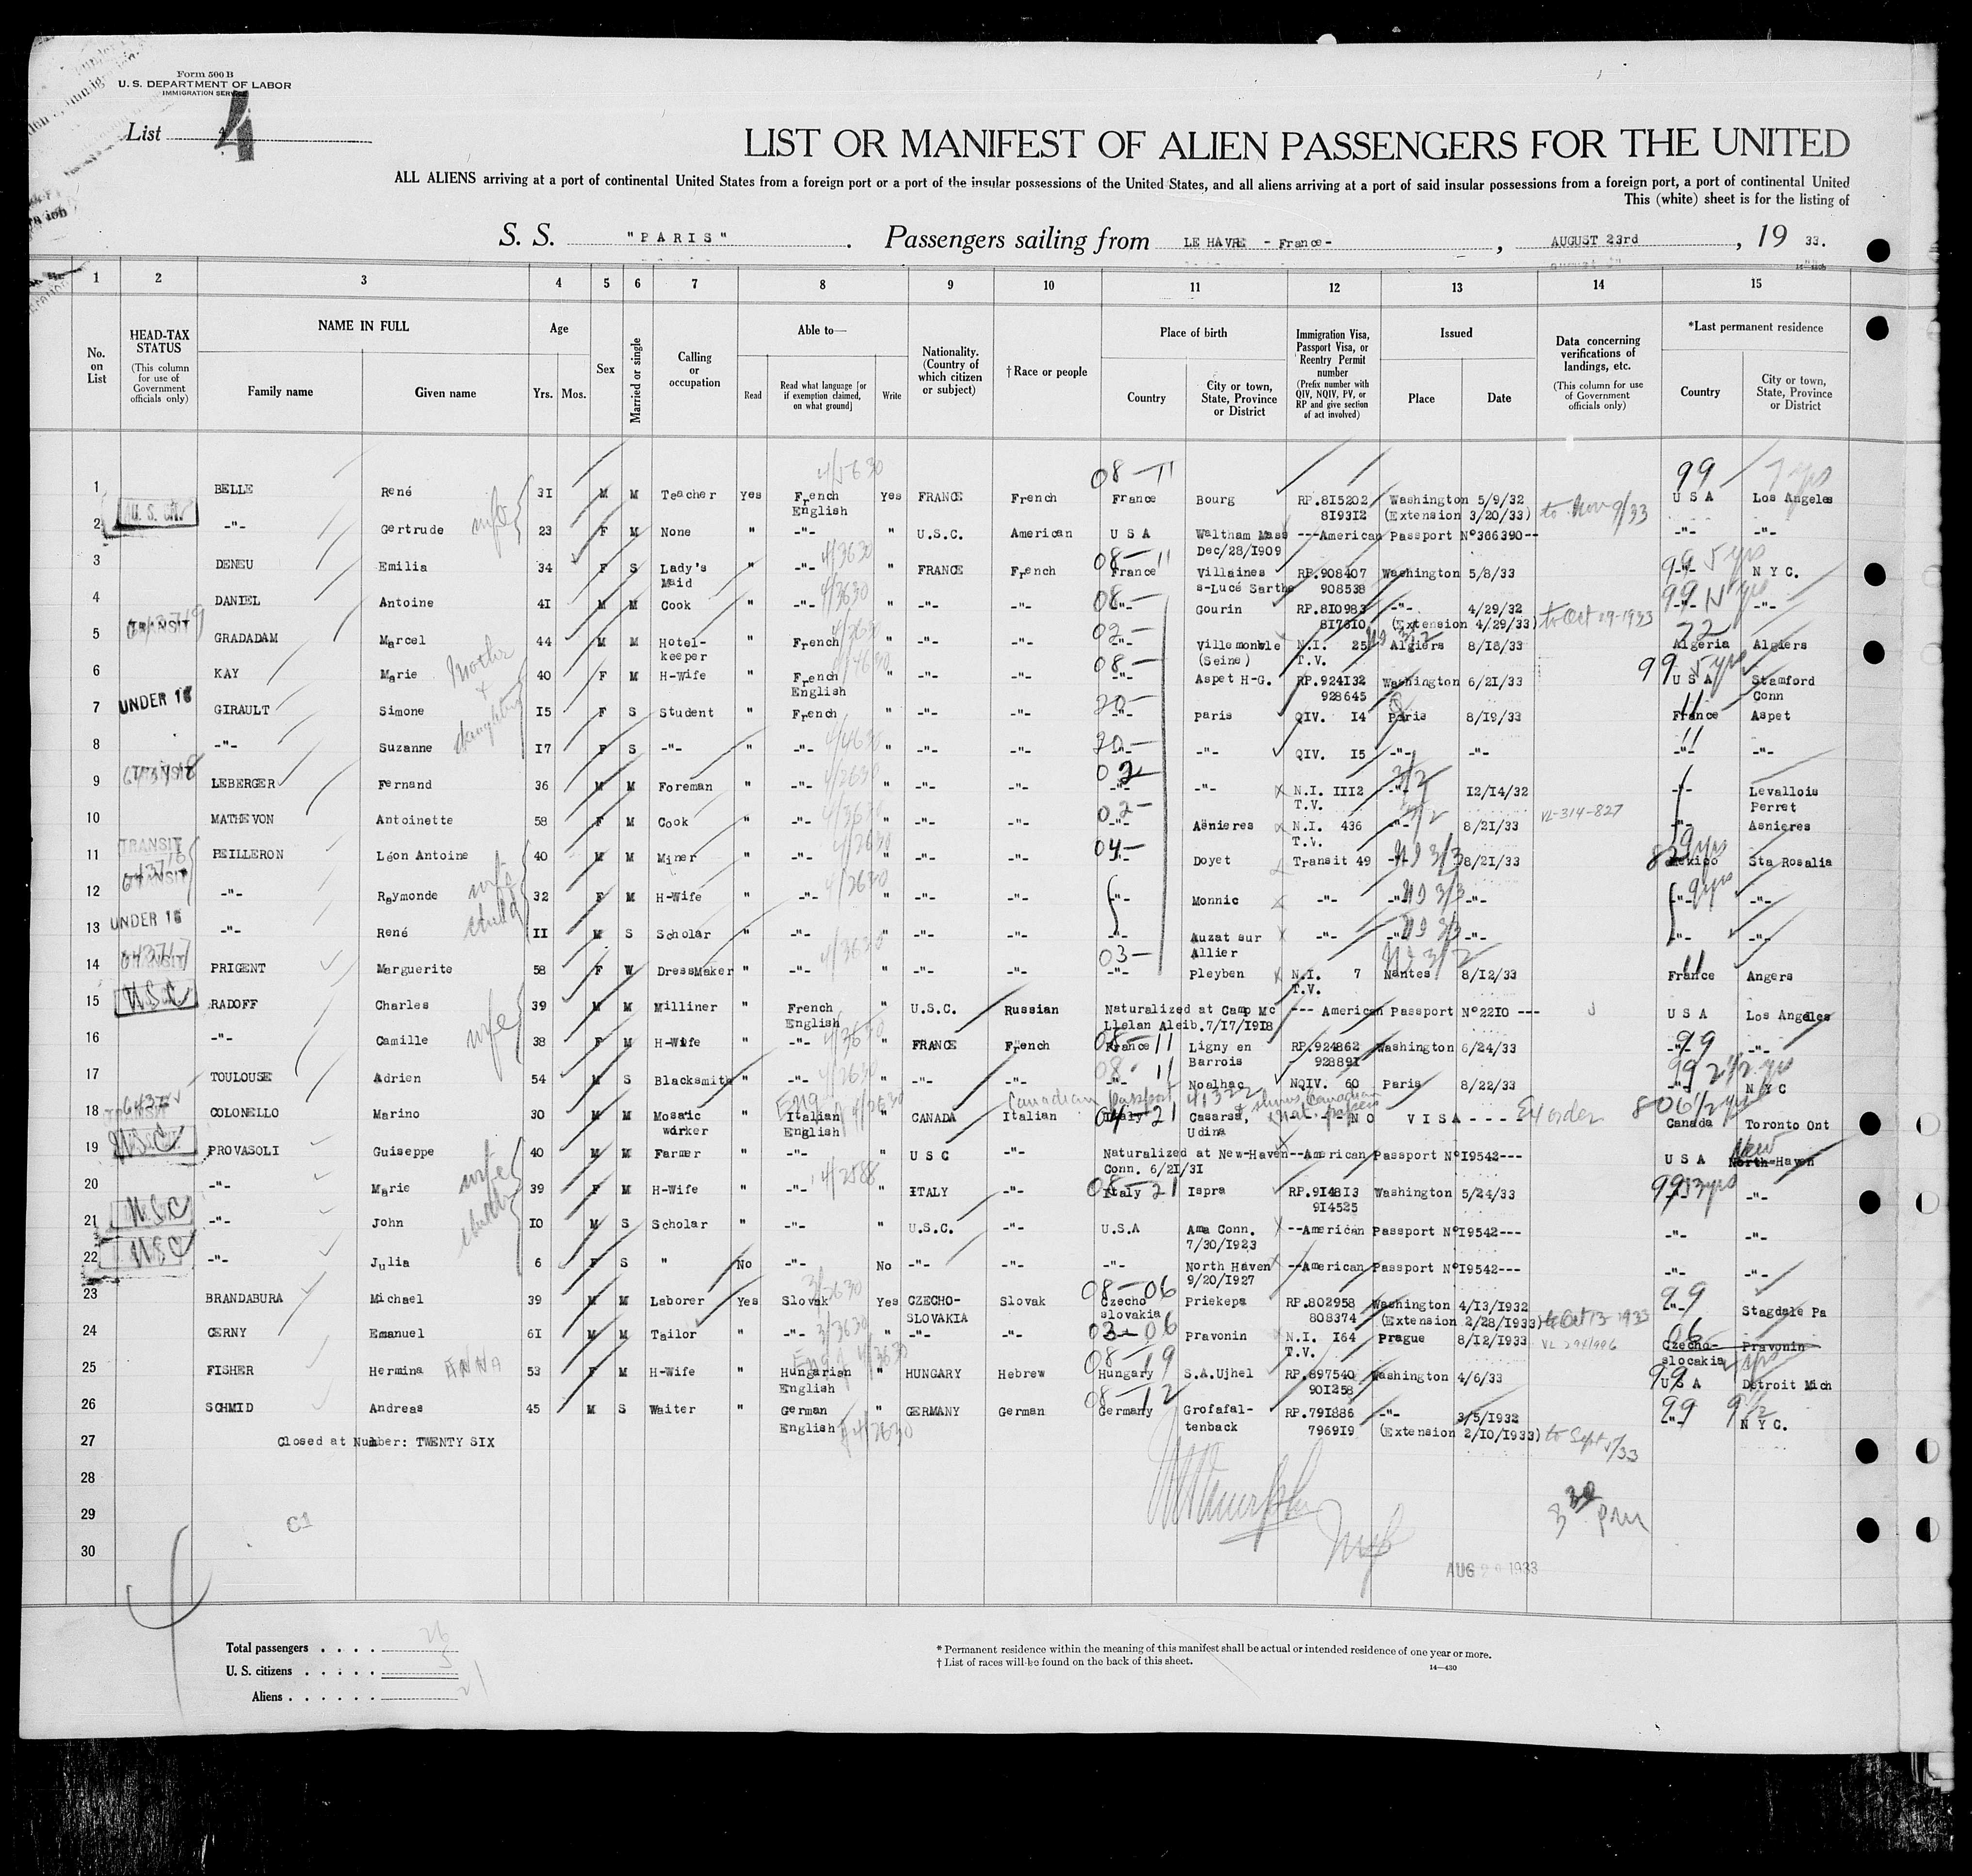 Form 500 B
U. S. DEPARTMENT OF LABOR
IMMIGRATION SERVICE
List 4
LIST OR MANIFEST OF ALIEN PASSENGERS FOR THE UNITED
ALL ALIENS arriving at a port of continental United States from a foreign port or a port of the insular possessions of the United States, and all aliens arriving at a port of said insular possessions from a foreign port, a port of continental United
This (white) sheet is for the listing of
S. S. "PARIS" . Passengers sailing from LE HAVRE - France - , AUGUST 23rd , 19 33.
1 2 3 4 5 6 7 8 9 10 11 12 13 14 15
No. on List
HEAD-TAX STATUS (This column for use of Government officials only)
NAME IN FULL
Family name
Given name
Age
Yrs. Mos.
Sex
Married or single
Calling or occupation
Able to—
Read
Read what language [or if exemption claimed, on what ground]
Write
Nationality. (Country of which citizen or subject)
†Race or people
Place of birth
Country
City or town, State, Province or District
Immigration Visa, Passport Visa, or Reentry Permit number (Prefix number with QIV, NQIV, PV, or RP and give section of act involved)
Issued
Place
Date
Data concerning verifications of landings, etc. (This column for use of Government officials only)
*Last permanent residence
Country
City or town, State, Province or District
08-11 99 7 yrs
1 BELLE René 31 M M Teacher Yes French English Yes FRANCE French France Bourg RP.815202 819312 Washington 5/9/32 (Extension 3/20/33) to Nov 9/33 U S A Los Angeles
2 U. S. CIT. -"- Gertrude wife 23 F M None " -"- " U.S.C. American U S A Waltham Mass Dec/28/1909 ---American Passport N°366390-- -"- -"-
3 DENEU Emilia 34 F S Lady's Maid " -"- 4/3630 " FRANCE French 08-11 France Villaines s-Lucé Sarthe RP.908407 908538 Washington 5/8/33 99 5 yrs -"- N Y C.
4 DANIEL Antoine 41 M M Cook " -"- 4/3630 " -"- -"- 08- -"- Gourin RP.810983 817610 -"- 4/29/32 (Extension 4/29/33) to Oct 29-1933 99 -"- -"-
5 TRANSIT GRADADAM Marcel 44 M M Hotel-keeper " French " -"- -"- 02- -"- Villemomble (Seine) N.I. 25 T.V. Algiers 8/18/33 72 Algeria Algiers
6 KAY Marie mother & daughters 40 F M H-Wife " French English " -"- -"- 08- -"- Aspet H-G. RP.924132 928645 Washington 6/21/33 99 5 yrs U S A Stamford Conn
7 UNDER 16 GIRAULT Simone 15 F S Student " French " -"- -"- 20- -"- Paris QIV. 14 Paris 8/19/33 11 France Aspet
8 -"- Suzanne 17 F S -"- " -"- " -"- -"- 20- -"- -"- QIV. 15 -"- -"- 11 -"- -"-
9 TRANSIT LEBERGER Fernand 36 M M Foreman " -"- " -"- -"- 02 -"- -"- N.I. 1112 T.V. 3/2 -"- 12/14/32 -"- Levallois Perret
10 MATHEVON Antoinette 58 F M Cook " -"- " -"- -"- 02- -"- Asnieres N.I. 436 T.V. -"- 8/21/33 VL-314-827 -"- Asnieres
11 TRANSIT PEILLERON Léon Antoine 40 M M Miner " -"- " -"- -"- 04- -"- Doyet Transit 49 -"- 3/3 8/21/33 82 9 yrs Mexico Sta Rosalia
12 TRANSIT -"- Raymonde wife 32 F M H-Wife " -"- " -"- -"- -"- Monnic -"- -"- 3/3 -"- -"- 9 yrs -"-
13 UNDER 16 -"- René child 11 M S Scholar " -"- " -"- -"- -"- Auzat sur Allier -"- -"- 3/3 -"- -"- -"-
14 TRANSIT PRIGENT Marguerite 58 F W DressMaker " -"- " -"- -"- 03- -"- Pleyben N.I. 7 T.V. Nantes 8/12/33 11 France Angers
15 U.S.C RADOFF Charles 39 M M Milliner " French English " U.S.C. Russian Naturalized at Camp Mc Llelan Aleib.7/17/1918 --- American Passport N°2210 --- U S A Los Angeles
16 -"- Camille wife 38 F M H-Wife " -"- " FRANCE French 08-11 France Ligny en Barrois RP.924862 928891 Washington 6/24/33 99 -"- -"-
17 TOULOUSE Adrien 54 M S Blacksmith " -"- " -"- -"- 08-11 -"- Noalhac NQIV. 60 Paris 8/22/33 99 2 1/2 yrs -"- N Y C
18 TRANSIT COLONELLO Marino 30 M M Mosaic worker " Eng Italian English " CANADA Italian Canadian passport 04-21 Italy Casarsa, Udina ---- NO VISA---- Ex order 80 6 1/2 yrs Canada Toronto Ont
19 U.S.C PROVASOLI Guiseppe 40 M M Farmer " -"- " U S C -"- Naturalized at New-Haven Conn. 6/21/31 --American Passport N°19542--- U S A New North-Haven
20 -"- Marie wife 39 F M H-Wife " -"- " ITALY -"- 08-21 Italy Ispra RP.914813 914525 Washington 5/24/33 99 13 yrs -"- -"-
21 U.S.C -"- John 10 M S Scholar " -"- " U.S.C. -"- U.S.A Ama Conn. 7/30/1923 --American Passport N°19542--- -"- -"-
22 U.S.C -"- Julia 6 F S " No -"- No -"- -"- -"- North Haven 9/20/1927 --American Passport N°19542--- -"- -"-
23 BRANDABURA Michael 39 M M Laborer Yes Slovak Yes CZECHO-SLOVAKIA Slovak 08-06 Czecho slovakia Priekepa RP.802958 808374 Washington 4/13/1932 (Extension 2/28/1933) to Oct 13 1933 99 -"- Stagdale Pa
24 CERNY Emanuel 61 M M Tailor " -"- 3/3630 " -"- -"- 03-06 Pravonin N.I. 164 T.V. Prague 8/12/1933 06 Czecho-slocakia Pravonin
25 FISHER Hermina ANNA 53 F M H-Wife " Eng Hungarian English " HUNGARY Hebrew 08-19 Hungary S.A.Ujhel RP.897540 901258 Washington 4/6/33 99 U S A Detroit Mich
26 SCHMID Andreas 45 M S Waiter " German English 4/2630 " GERMANY German 08-12 Germany Grofafal-tenback RP.791886 796919 -"- 3/5/1932 (Extension 2/10/1933) to Sept 5/33 99 9 1/2 -"- N Y C.
27 Closed at Number: TWENTY SIX
28
29 C1 3 30 pm
30
AUG 29 1933
Total passengers . . . . 26
U. S. citizens . . . . . 5
Aliens . . . . . . 21
* Permanent residence within the meaning of this manifest shall be actual or intended residence of one year or more.
† List of races will be found on the back of this sheet.
14—430